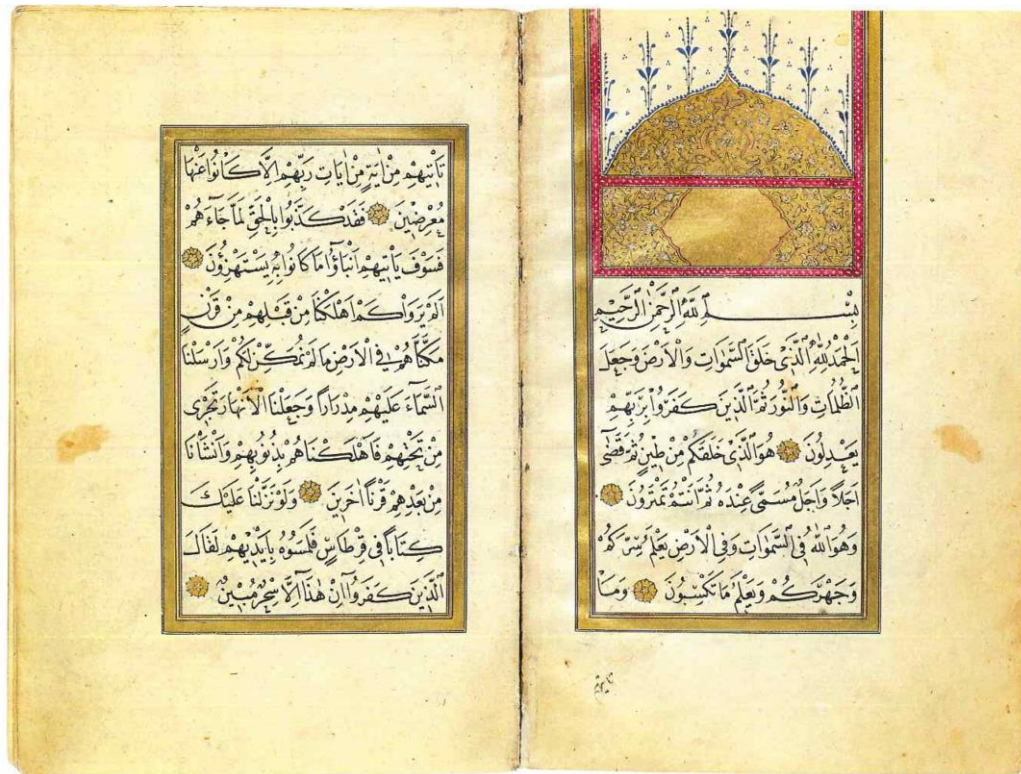 بِسْمِ ٱللّٰهِ ٱلرَّحْمٰنِ ٱلرَّحِيمِ
اَلْحَمْدُ لِلّٰهِ ٱلَّذٖى خَلَقَ ٱلسَّمٰوَاتِ وَالْاَرْضَ وَجَعَلَ
ٱلظُّلُمَاتِ وَٱلنُّورَ ثُمَّ ٱلَّذٖينَ كَفَرُوا بِرَبِّهِمْ
يَعْدِلُونَ هُوَ ٱلَّذٖى خَلَقَكُمْ مِنْ طٖينٍ ثُمَّ قَضٰٓى
اَجَلاً وَاَجَلٌ مُسَمًّى عِنْدَهُ ثُمَّ اَنْتُمْ تَمْتَرُونَ
وَهُوَ ٱللّٰهُ فِى ٱلسَّمٰوَاتِ وَفِى الْاَرْضِ يَعْلَمُ سِرَّكُمْ
وَجَهْرَكُمْ وَيَعْلَمُ مَا تَكْسِبُونَ وَمَا
تأتيهم
تَاْتٖيهِمْ مِنْ اٰيَةٍ مِنْ اٰيَاتِ رَبِّهِمْ اِلَّا كَانُوا عَنْهَا
مُعْرِضٖينَ فَقَدْ كَذَّبُوا بِالْحَقِّ لَمَّا جَٓاءَ هُمْ
فَسَوْفَ يَاْتٖيهِمْ اَنْبٰٓؤُا مَا كَانُوا بِهٖ يَسْتَهْزِؤُنَ
اَلَمْ يَرَوْا كَمْ اَهْلَكْنَا مِنْ قَبْلِهِمْ مِنْ قَرْنٍ
مَكَّنَّا هُمْ فِى الْاَرْضِ مَا لَمْ نُمَكِّنْ لَكُمْ وَاَرْسَلْنَا
ٱلسَّمَٓاءَ عَلَيْهِمْ مِدْرَاراً وَجَعَلْنَا الْاَنْهَارَ تَجْرٖى
مِنْ تَحْتِهِمْ فَاَهْلَكْنَا هُمْ بِذُنُوبِهِمْ وَاَنْشَاْنَا
مِنْ بَعْدِهِمْ قَرْناً اٰخَرٖينَ وَلَوْ نَزَّلْنَا عَلَيْكَ
كِتَاباً فٖى قِرْطَاسٍ فَلَمَسُوهُ بِاَيْدٖيهِمْ لَقَالَ
ٱلَّذٖينَ كَفَرُٓوا اِنْ هٰذَٓا اِلَّا سِحْرٌ مُبٖينٌ